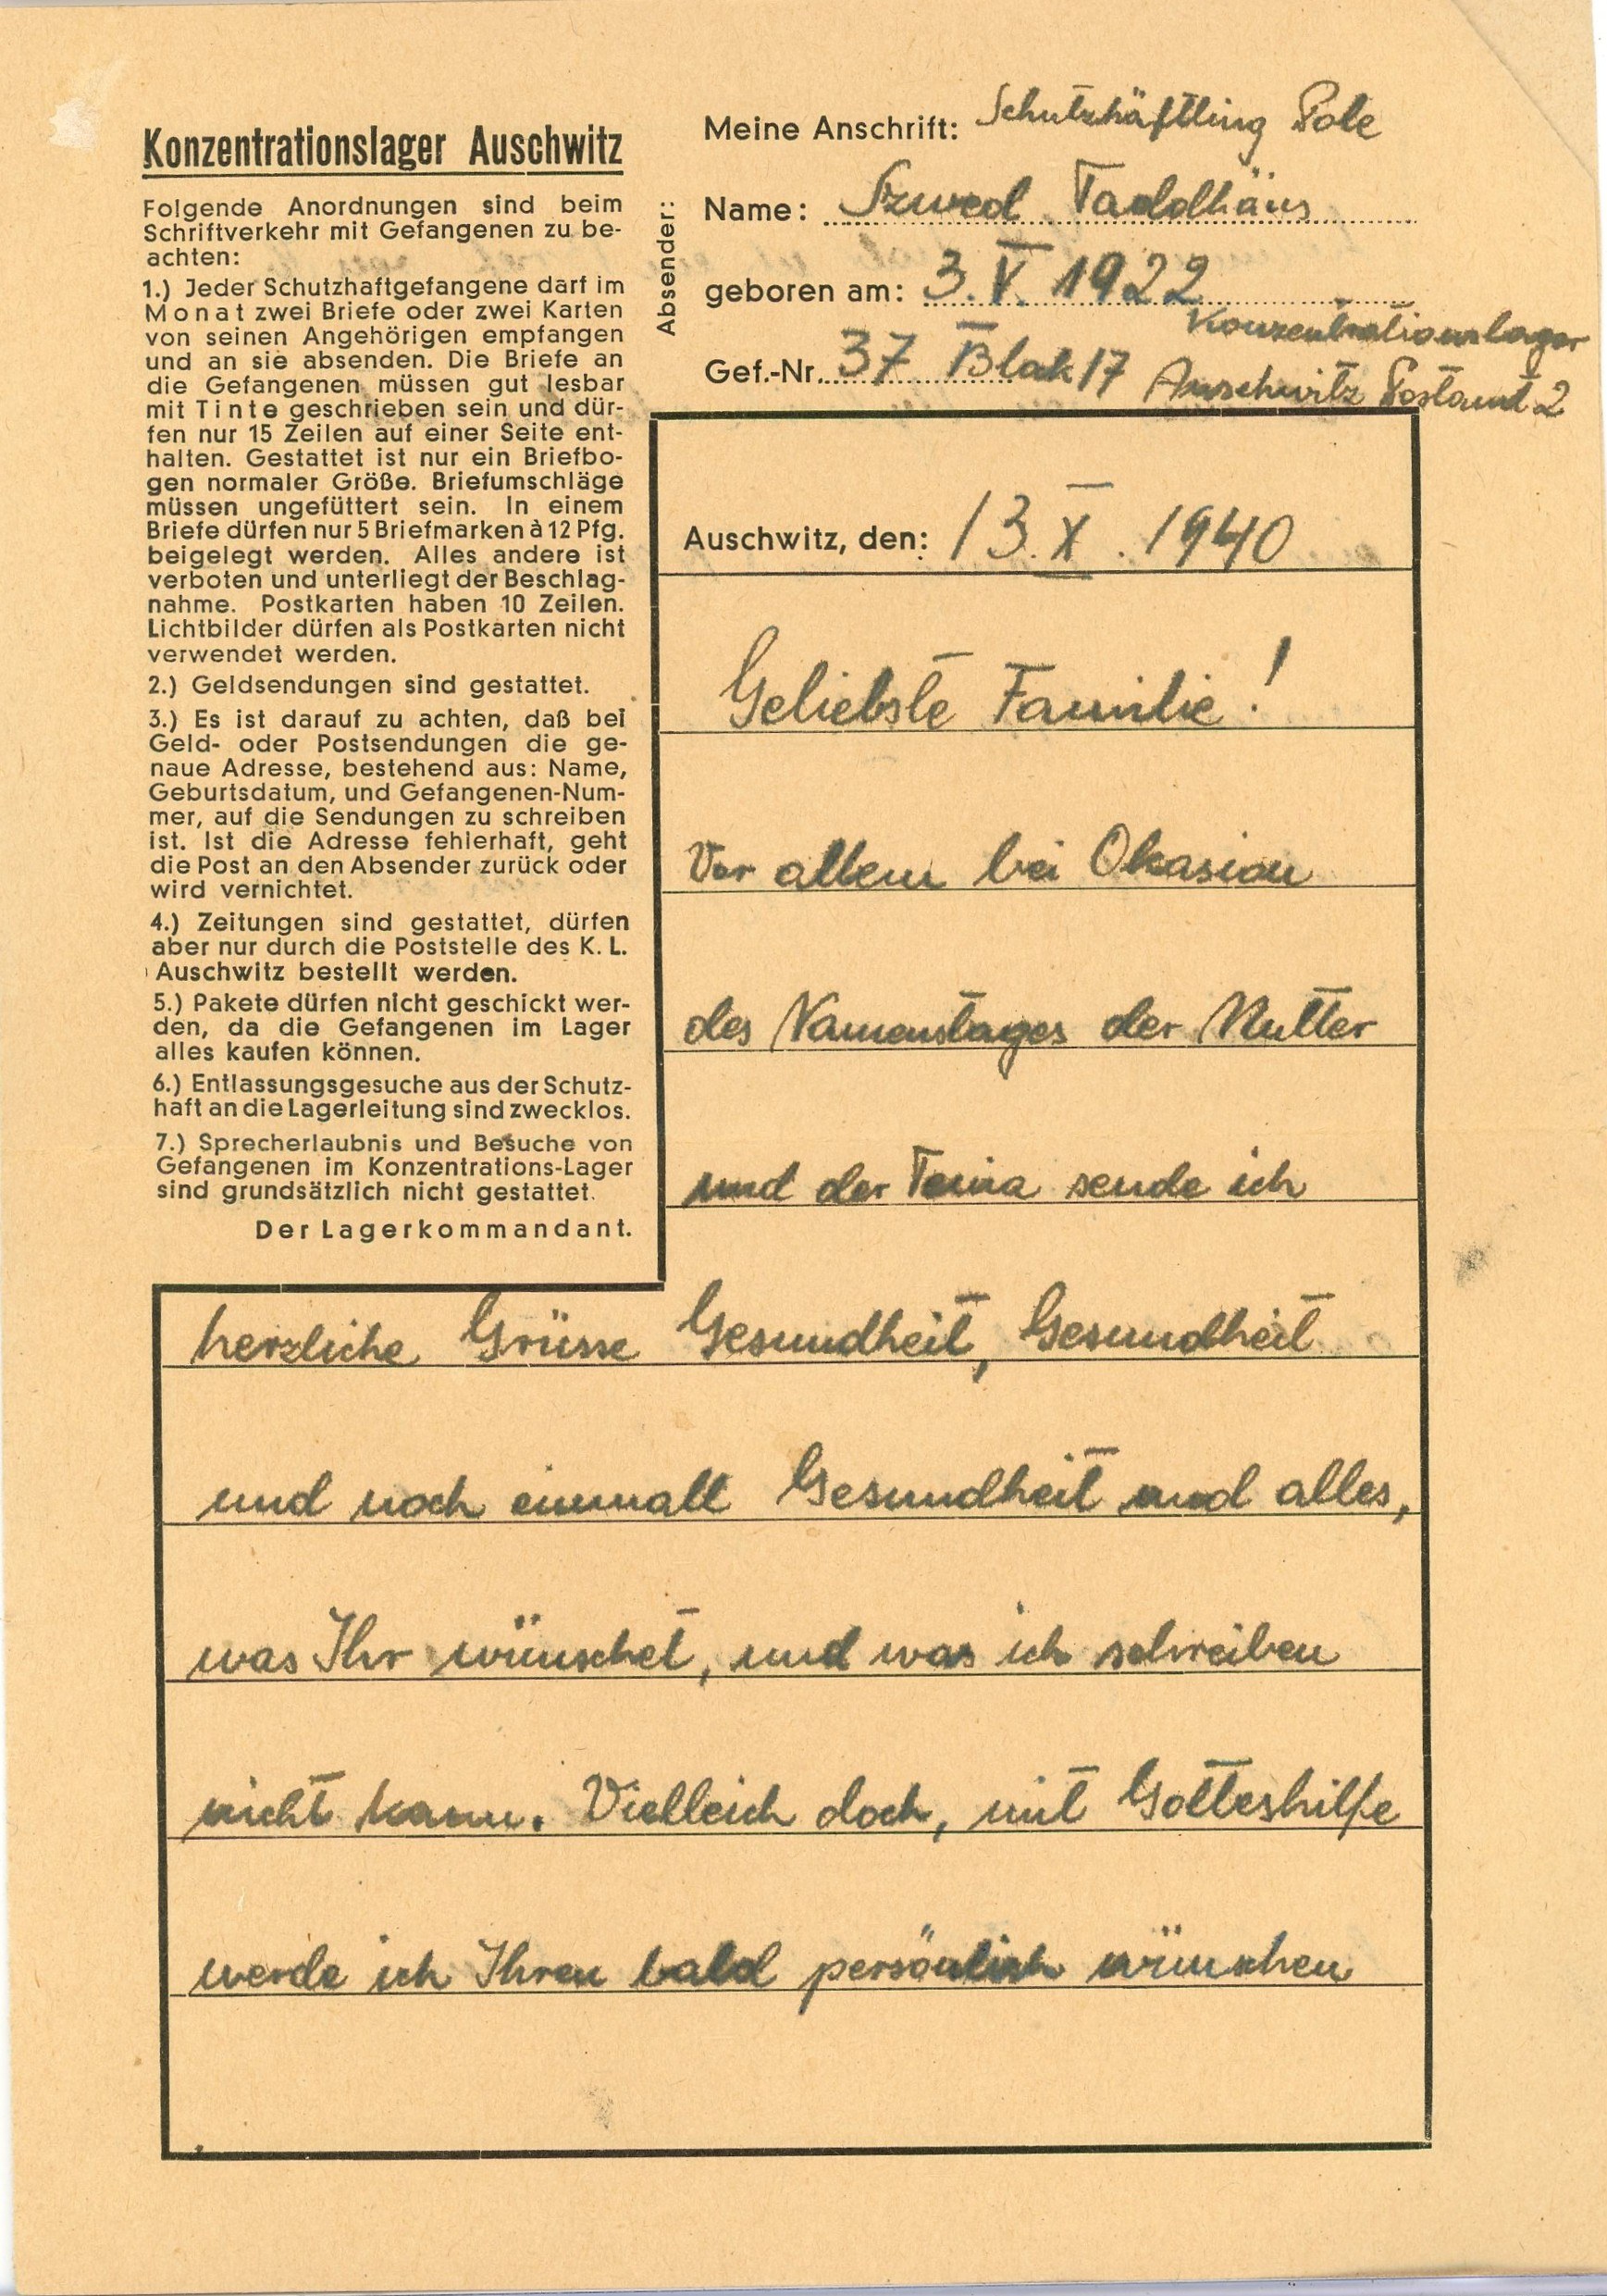 Konzentrationslager Auschwitz
Folgende Anordnungen sind beim
Schriftverkehr mit Gefangenen zu be-
achten:
1.) Jeder Schutzhaftgefangene darf im
Monat zwei Briefe oder zwei Karten
von seinen Angehörigen empfangen
und an sie absenden. Die Briefe an
die Gefangenen müssen gut lesbar
mit Tinte geschrieben sein und dür-
fen nur 15 Zeilen auf einer Seite ent-
halten. Gestattet ist nur ein Briefbo-
gen normaler Größe. Briefumschläge
müssen ungefüttert sein. In einem
Briefe dürfen nur 5 Briefmarken à 12 Pfg.
beigelegt werden. Alles andere ist
verboten und unterliegt der Beschlag-
nahme. Postkarten haben 10 Zeilen.
Lichtbilder dürfen als Postkarten nicht
verwendet werden.
2.) Geldsendungen sind gestattet.
3.) Es ist darauf zu achten, daß bei
Geld- oder Postsendungen die ge-
naue Adresse, bestehend aus: Name,
Geburtsdatum, und Gefangenen-Num-
mer, auf die Sendungen zu schreiben
ist. Ist die Adresse fehlerhaft, geht
die Post an den Absender zurück oder
wird vernichtet.
4.) Zeitungen sind gestattet, dürfen
aber nur durch die Poststelle des K. L.
Auschwitz bestellt werden.
5.) Pakete dürfen nicht geschickt wer-
den, da die Gefangenen im Lager
alles kaufen können.
6.) Entlassungsgesuche aus der Schutz-
haft an die Lagerleitung sind zwecklos.
7.) Sprecherlaubnis und Besuche von
Gefangenen im Konzentrations-Lager
sind grundsätzlich nicht gestattet.
Der Lagerkommandant.
Absender:
Meine Anschrift: Schutzhäftling Pole
Name: Szwed Taddhäus
geboren am: 3. V. 1922
Konzentrationslager
Gef.-Nr. 37 Blok 17 Auschwitz Postamt 2
Auschwitz, den: 13. X. 1940
Geliebste Familie!
Vor allem bei Okasion
des Namenstages der Mutter
und der sende ich
herzliche Grüsse Gesundheit, Gesundheit
und noch einmall Gesundheit und alles,
was Ihr wünschet, und was ich schreiben
nicht kann. Vielleich doch, mit Gotteshilfe
werde ich Ihren bald persönlich wünschen